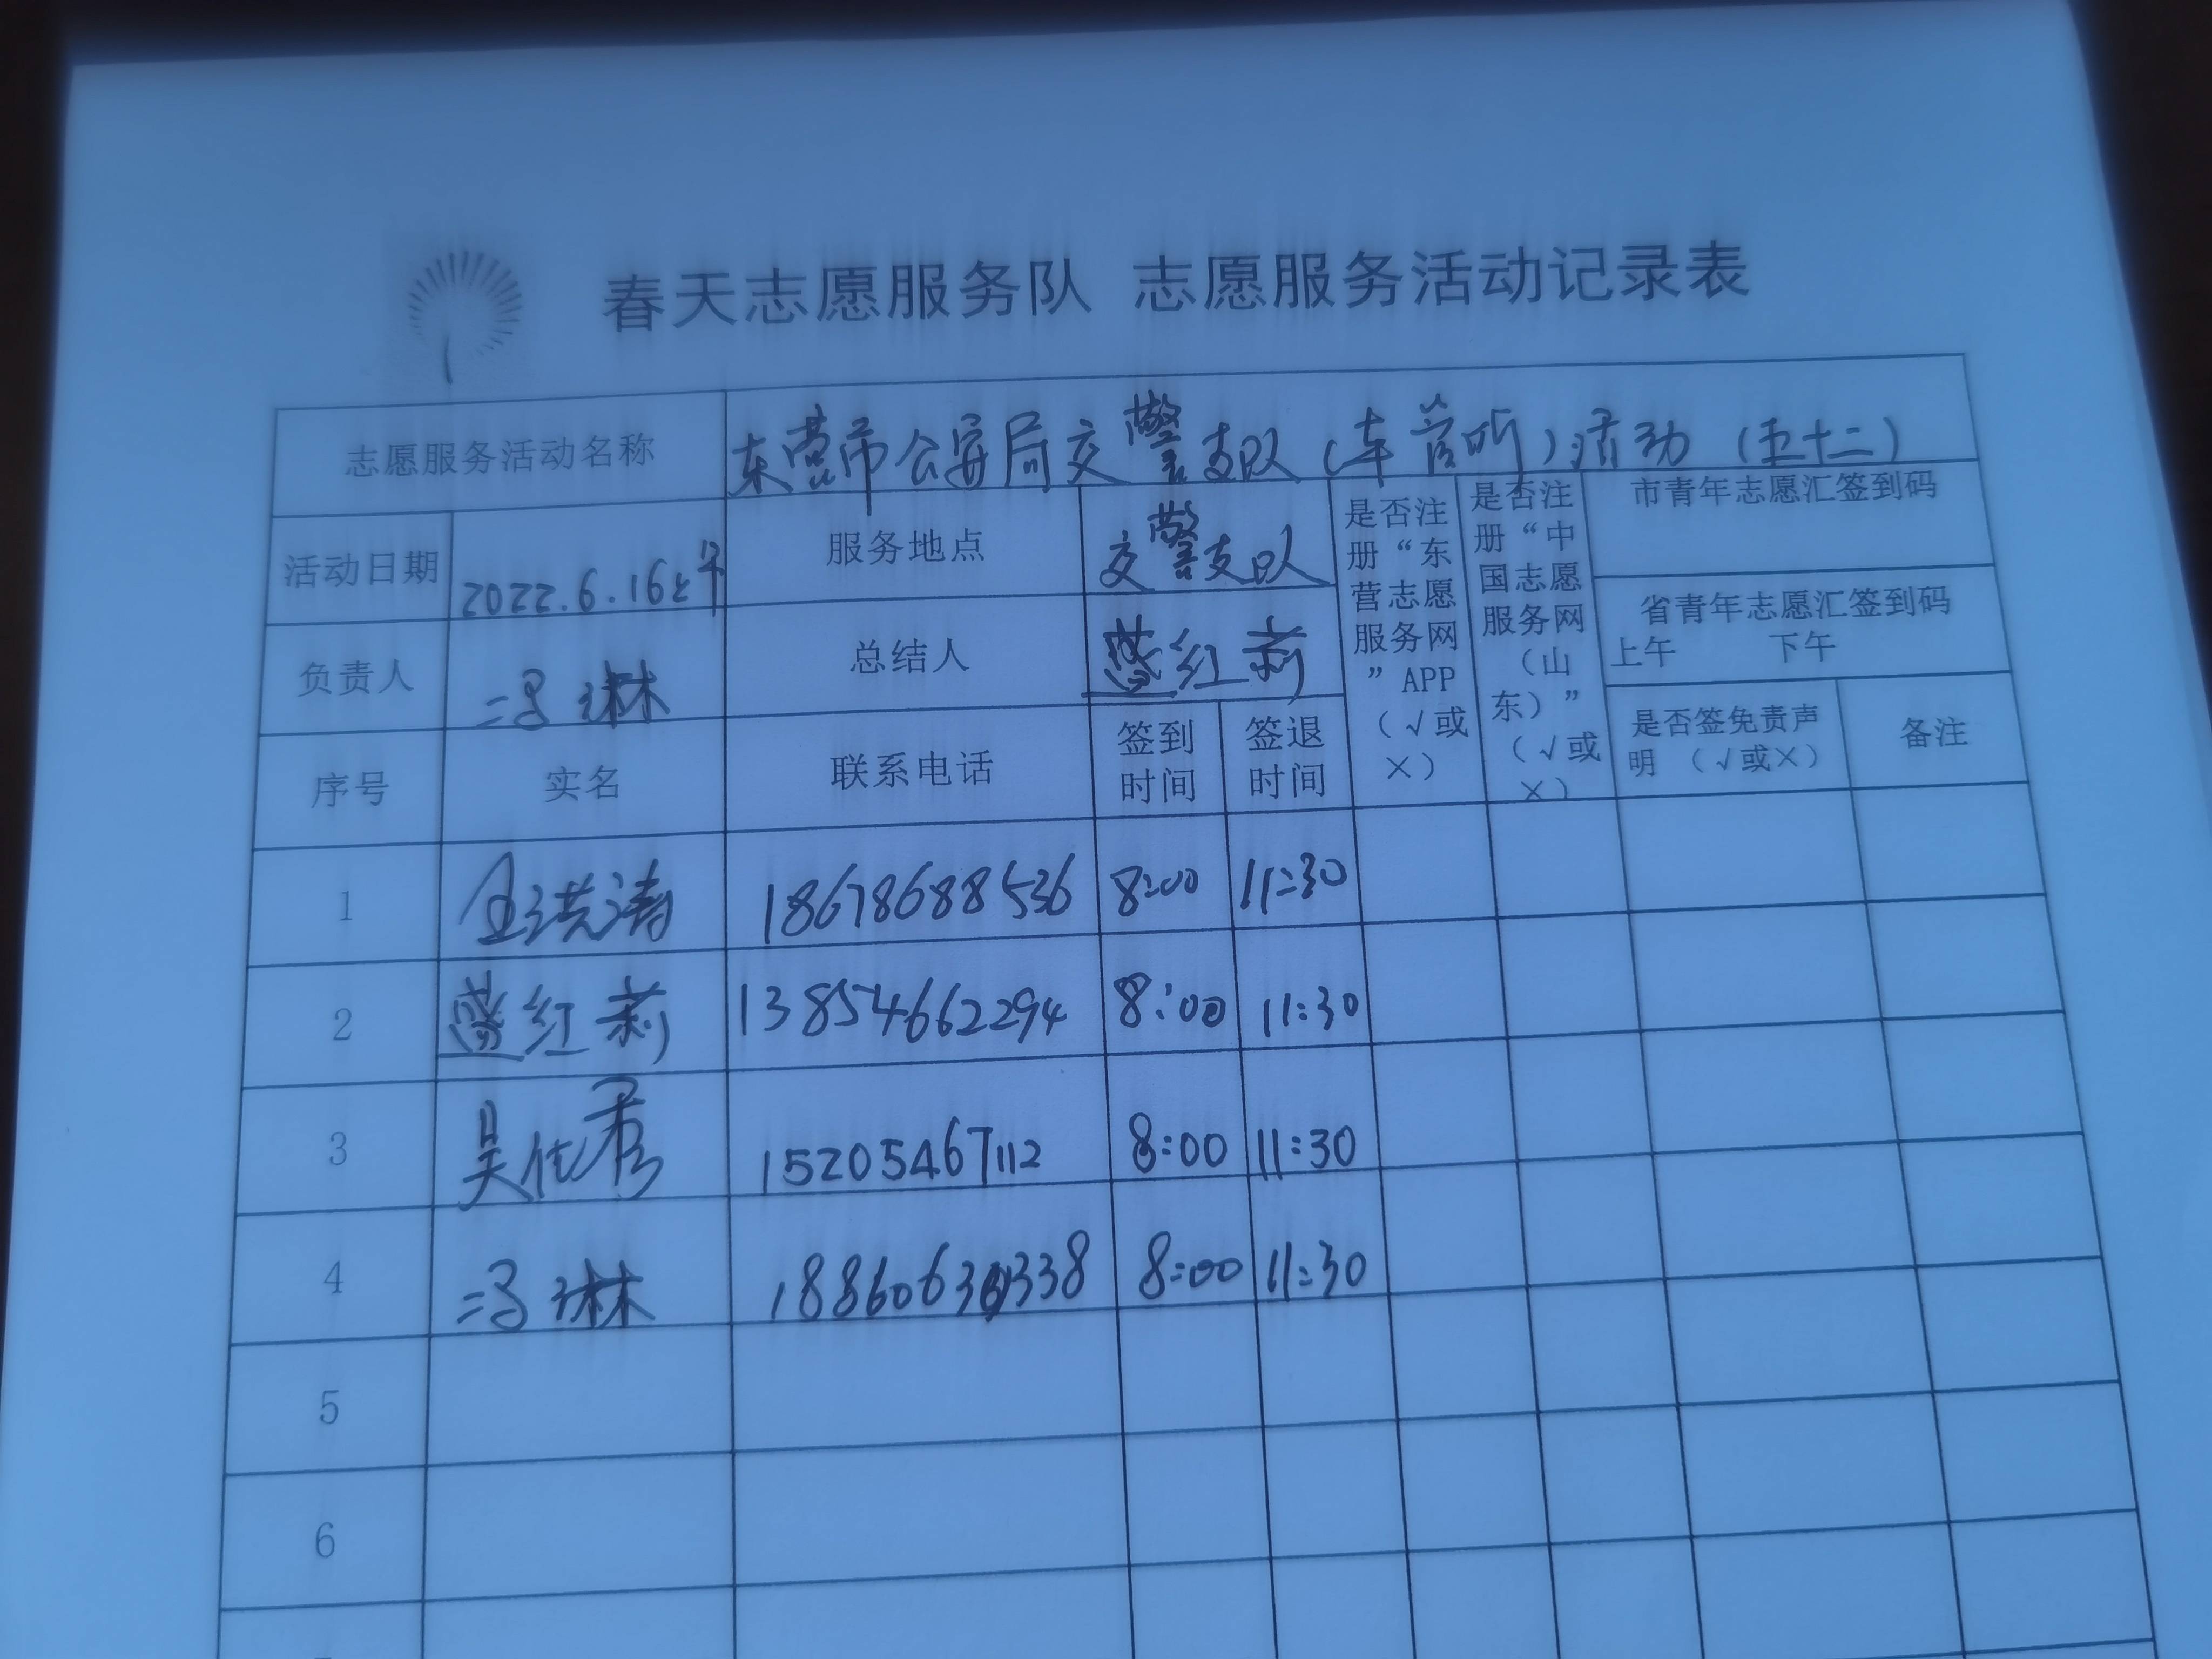 春天志愿服务队 志愿服务活动记录表
志愿服务活动名称 东营市公安局交警支队（车管所）活动（五十二）
活动日期 2022.6.16上午 服务地点 交警支队
负责人 冯琳 总结人 红莉
是否注册“东营志愿服务网”APP（√或×）
是否注册“中国志愿服务网（山东）”（√或×）
市青年志愿汇签到码
省青年志愿汇签到码
上午 下午
是否签免责声明（√或×） 备注
序号 实名 联系电话 签到时间 签退时间
1 洪涛 18678688536 8:00 11:30
2 红莉 13854662294 8:00 11:30
3 吴代秀 15205467112 8:00 11:30
4 冯琳 8:00 11:30
5
6